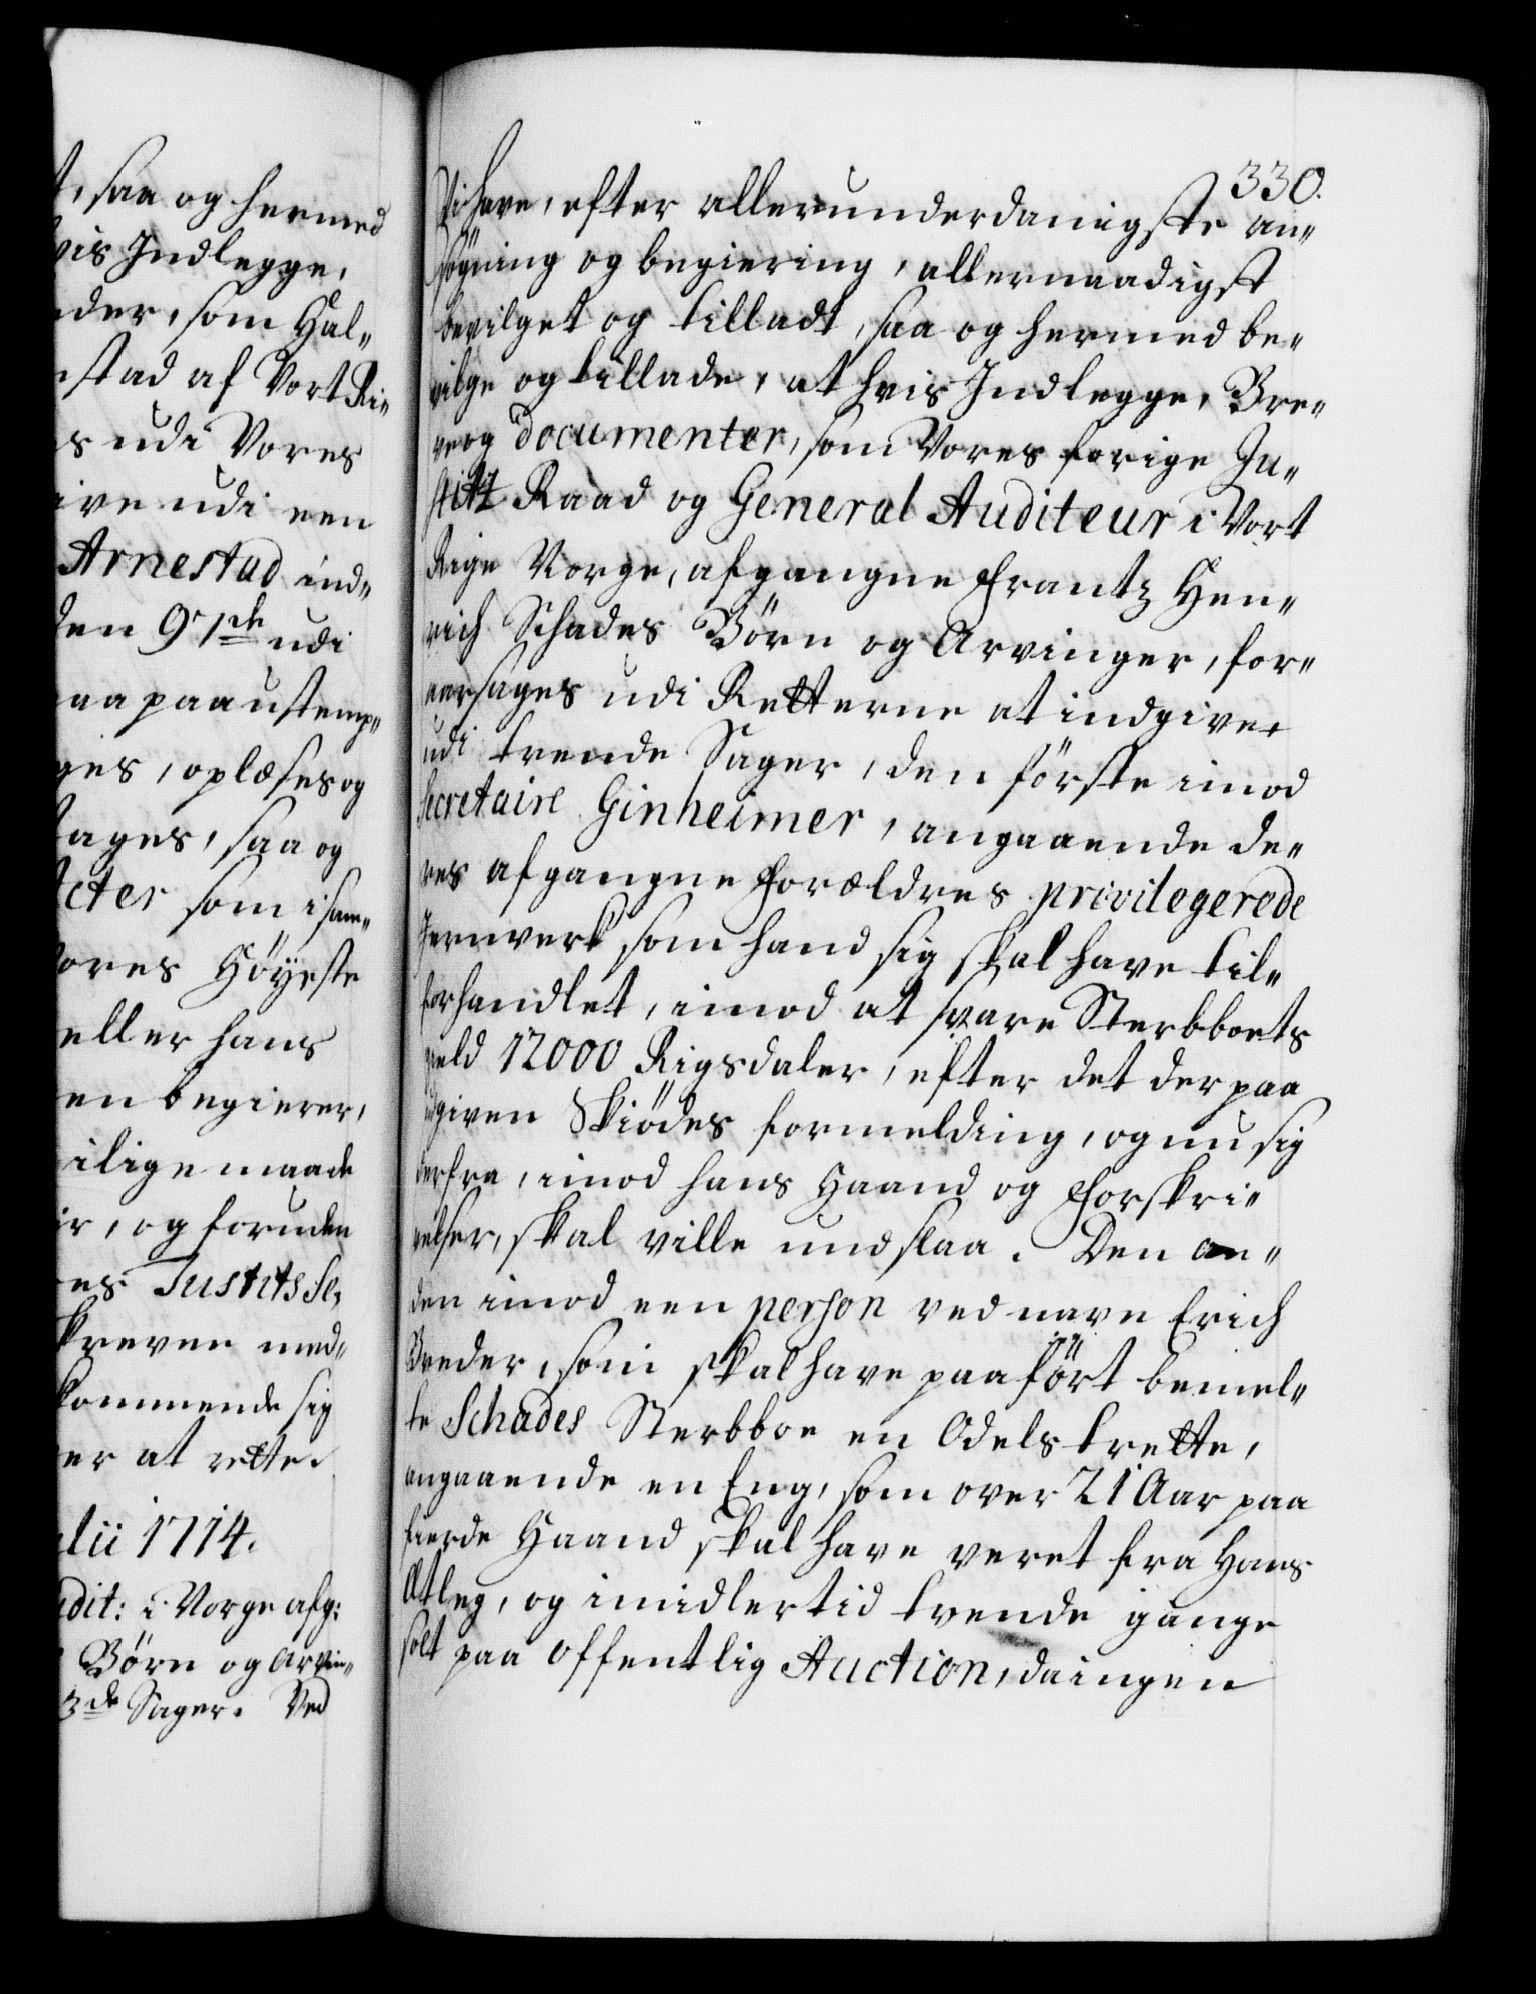 t, saa og hermed
vis Indlegge,
der, som Hal„
stad af Vort Ri„
s udi Vores
ive udi een
Arnestad ind„
den 91de udi
aa paa ustemp„
ges, oplæses og
tages, saa og
Acter som i sam„
ores Höyeste
eller hans
en begierer,
ilige maade
ir, og foruden
es Justits Se„
kreven med„
kommende sig
er at rette.
lii 1714.
udit: i Norge afg:
Börn og Arvin„
3de Sager. Ved
330.
Vi have, efter allerunderdanigste an„
søgning og begiering, allernaadigst
bevilget og tilladt, saa og hermed be„
vilge og tillade, at hvis Indlegge, Bre„
ve og documenter, som Vores forige Ju„
stitz Raad og General Auditeur i Vort
Rige Norge, afgangne Frantz Hen„
rich Schades Börn og Arvinger, for„
aarsages udi Retterne at indgive
udi trende Sager, den förste imod
Secretaire Ginheimer, angaaende de„
res afgangne Forældres privilegerede
Jernverk som hand sig skal have til„
forhandlet, imod at svare Sterbboets
gield 12000 Rigsdaler, efter det der paa
udgiven Skiödes formelding, og nu sig
derfra, imod hans Haand og Forskri„
velser, skal ville undslaa. Den an„
den imod een person ved navn Erich
Breder, som skal have paafört bemel„
te Schades Sterbboe en Odels trette,
angaaende en Eng, som over 21 Aar paa
fierde Haand skal have veret fra Hans
Atleg, og imidlertid tvende gange
solt paa offentlig Auction, da ingen